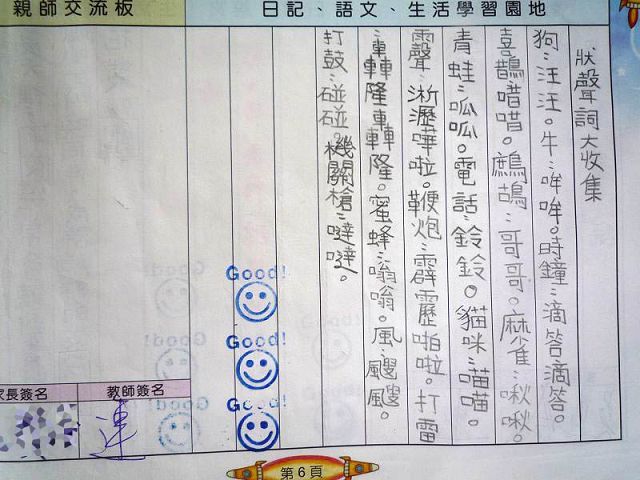 親師交流板
日記、語文、生活學習園地
狀聲詞大收集
狗：汪汪。牛：哞哞。時鐘：滴答滴答。
喜鵲：喳喳。鷓鴣：哥哥。麻雀：啾啾。
青蛙：呱呱。電話：鈴鈴。貓咪：喵喵。
霞聲：淅瀝嘩啦。鞭炮：霹靂啪啦。打雷
：轟隆轟隆。蜜蜂：嗡嗡。風：颼颼。
打鼓：碰碰。機關槍：噠噠。
Good!
Good!
Good!
家長簽名
教師簽名
連
第6頁